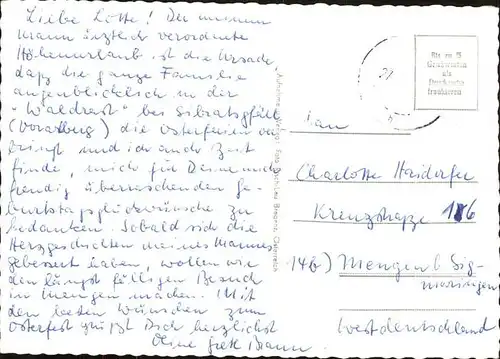 Liebe Lotte! Der meinem
Mann ärztlich verordnete
Höhenurlaub ist die Ursache,
daß die ganze Familie
augenblicklich in der
"Waldrast" bei Sibratsgfäll
(Vorarlberg) die Osterferien ver-
bringt und ich auch Zeit
finde, mich für Deine mich
freudig überraschenden Ge-
burtstagsglückwünsche zu
bedanken. Sobald sich die
Herzgeschichten meines Mannes
gebessert haben, wollen wir
den längst fälligen Besuch
in Mengen machen. Mit
den besten Wünschen zum
Osterfest grüßt Dich herzlichst
Deine Grete
Bis zu 5
Grußworten
als
Drucksache
frankieren
27
Frau
Charlotte Haidorfer
Kreuzstraße 116
14b) Mengen b. Sig-
maringen
Westdeutschland